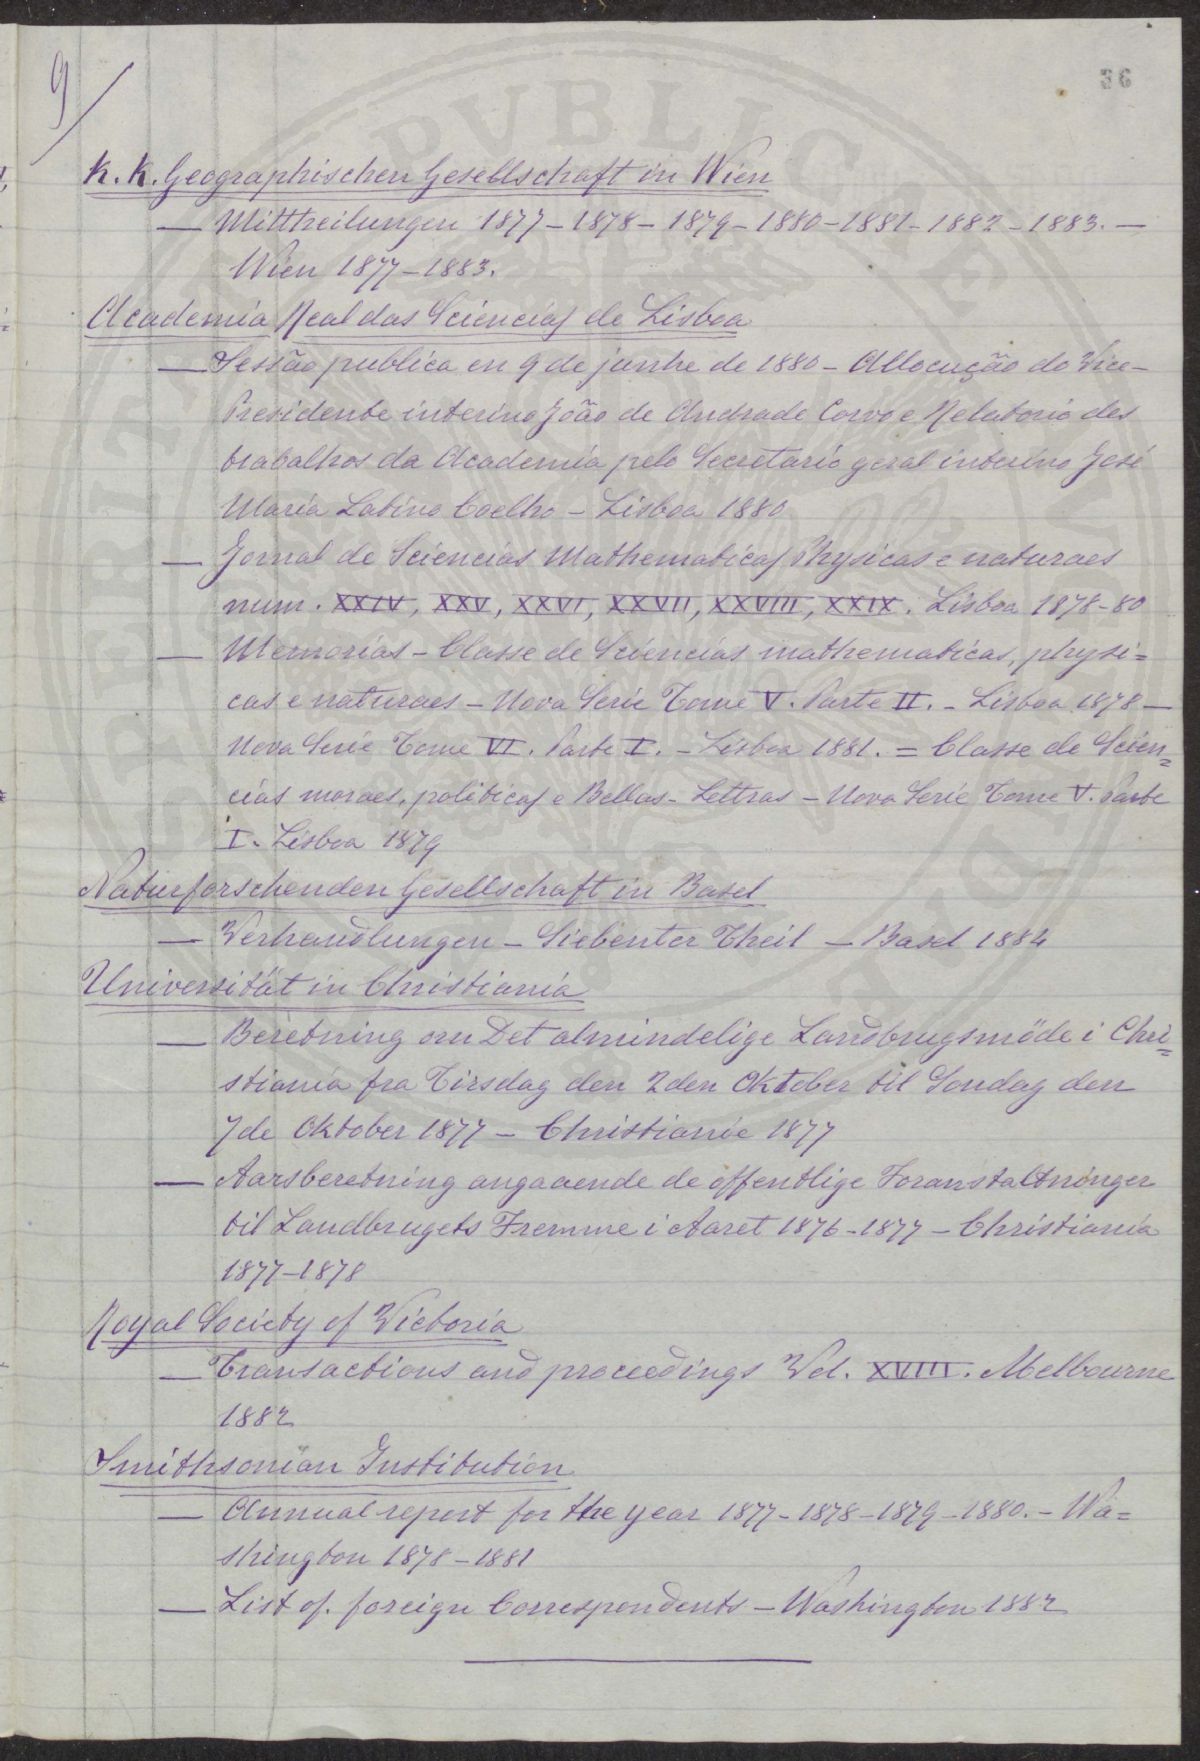 9/
36
K. K. Geographischen Gesellschaft in Wien
— Mittheilungen 1877 – 1878 – 1879 – 1880 – 1881 – 1882 – 1883. —
Wien 1877 – 1883.
Academia Real das Sciencias de Lisboa
— Sessão publica en 9 de junho de 1880 – Allocução do Vice-
Presidente interino João de Andrade Corvo e Relatorio des
trabalhos da Academia pelo Secretario geral interino José
Maria Latino Coelho – Lisboa 1880
— Jornal de Sciencias Mathematicas Physicas e naturaes
num. XXIV, XXV, XXVI, XXVII, XXVIII, XXIX. Lisboa 1878-80
— Memorias – Classe de Sciencias mathematicas, physi=
cas e naturaes – Nova Serie Tome V. Parte II. – Lisboa 1878 —
Nova Serie Tome VI. Parte I. – Lisboa 1881. = Classe de Scien=
cias moraes, politicas e Bellas-Lettras – Nova Serie Tome V. Parte
I. Lisboa 1879
Naturforschenden Gesellschaft in Basel
— Verhandlungen – Siebenter Theil – Basel 1884
Universität in Christiania
— Beretning om Det almindelige Landbrugsmöde i Chri=
stiania fra Tirsdag den 2den Oktober til Sondag den
7de Oktober 1877 – Christianie 1877
— Aarsberetning angaaende de offentlige Foranstaltninger
til Landbrugets Fremme i Aaret 1876-1877 – Christiania
1877-1878
Royal Society of Victoria
— Transactions and proceedings Vol. XVIII. Melbourne
1882
Smithsonian Institution
— Annual report for the year 1877 – 1878 – 1879 – 1880. – Wa=
shington 1878 – 1881
— List of. foreign Correspondents – Washington 1882